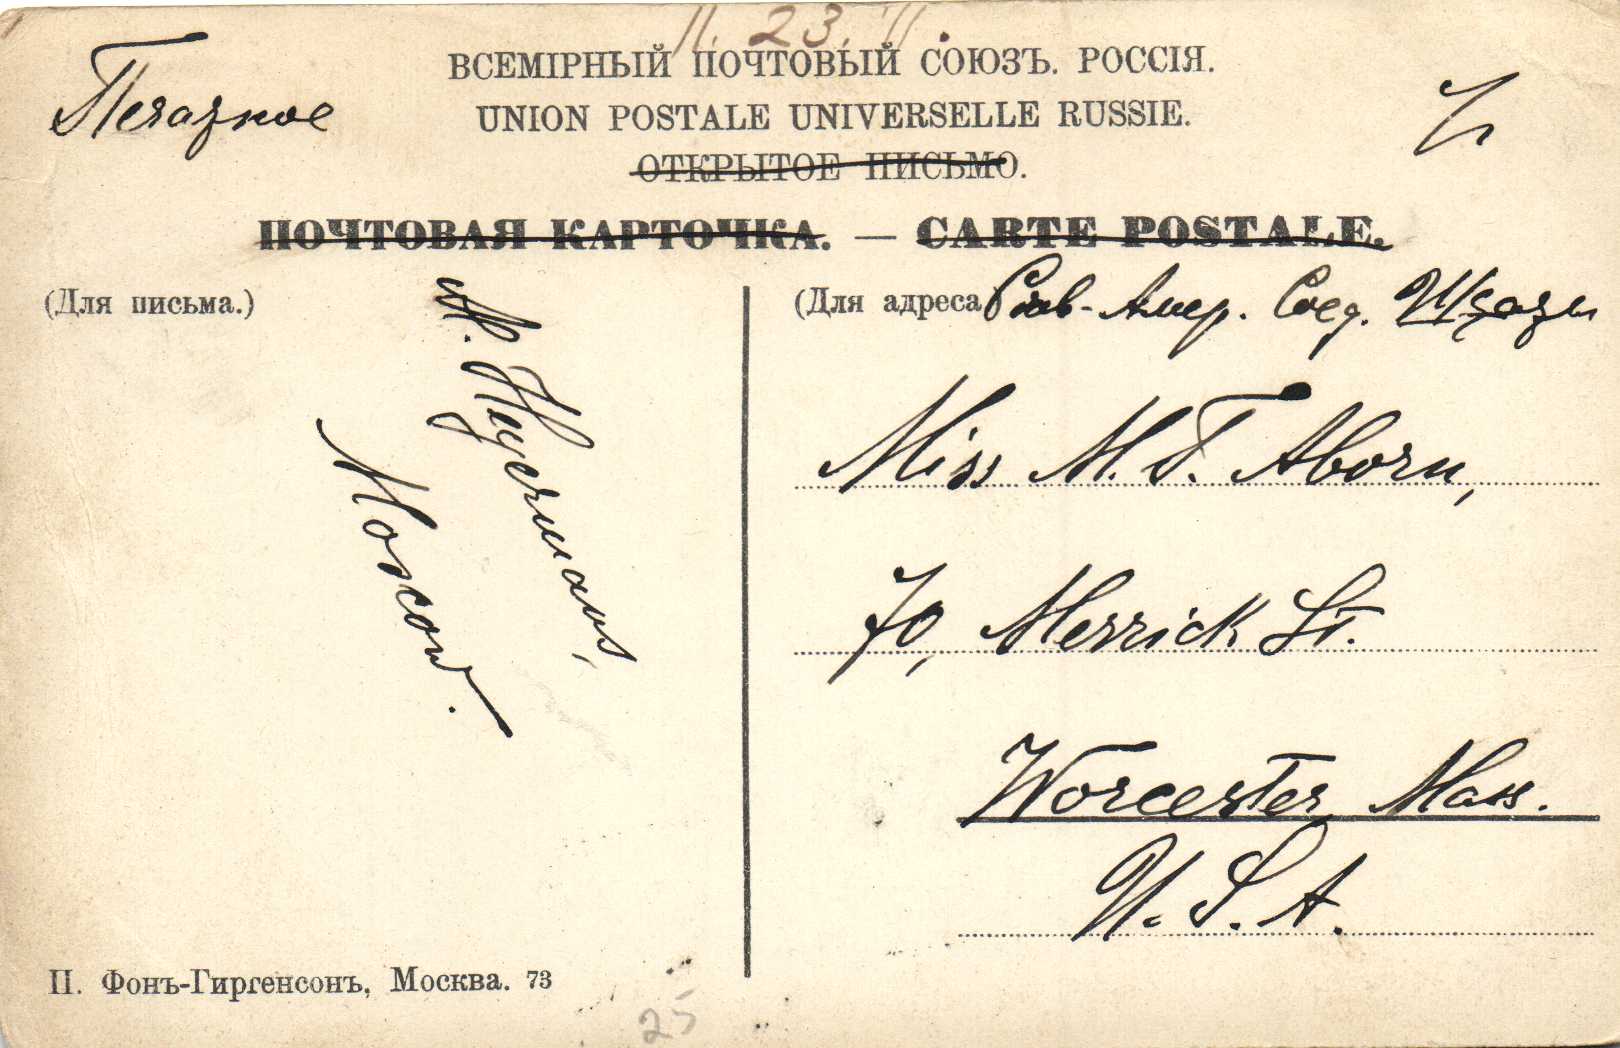 11. 23. '11.
ВСЕМІРНЫЙ ПОЧТОВЫЙ СОЮЗЪ. РОССІЯ.
Печатное
UNION POSTALE UNIVERSELLE RUSSIE.
ОТКРЫТОЕ ПИСЬМО.
ПОЧТОВАЯ КАРТОЧКА. — CARTE POSTALE.
(Для письма.)
Heyermans,
Moscow.
(Для адреса
Сѣв-Амер. Соед. Штаты
Miss M. T. Aborn,
70, Merrick St.
Worcester, Mass.
U. S. A.
П. Фонъ-Гиргенсонъ, Москва. 73
25